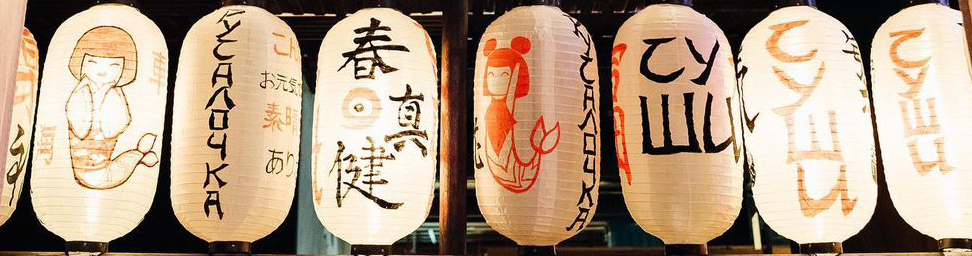 РУСАЛОЧКА
お元気
あり
春
真
健
РУСАЛОЧКА
СУ
ШИ
СУШИ
СУШИ